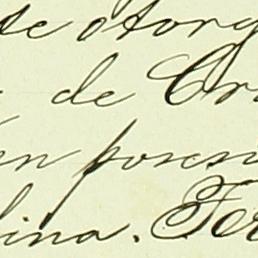 se otorg
de Cr
en poses
lina. Fer